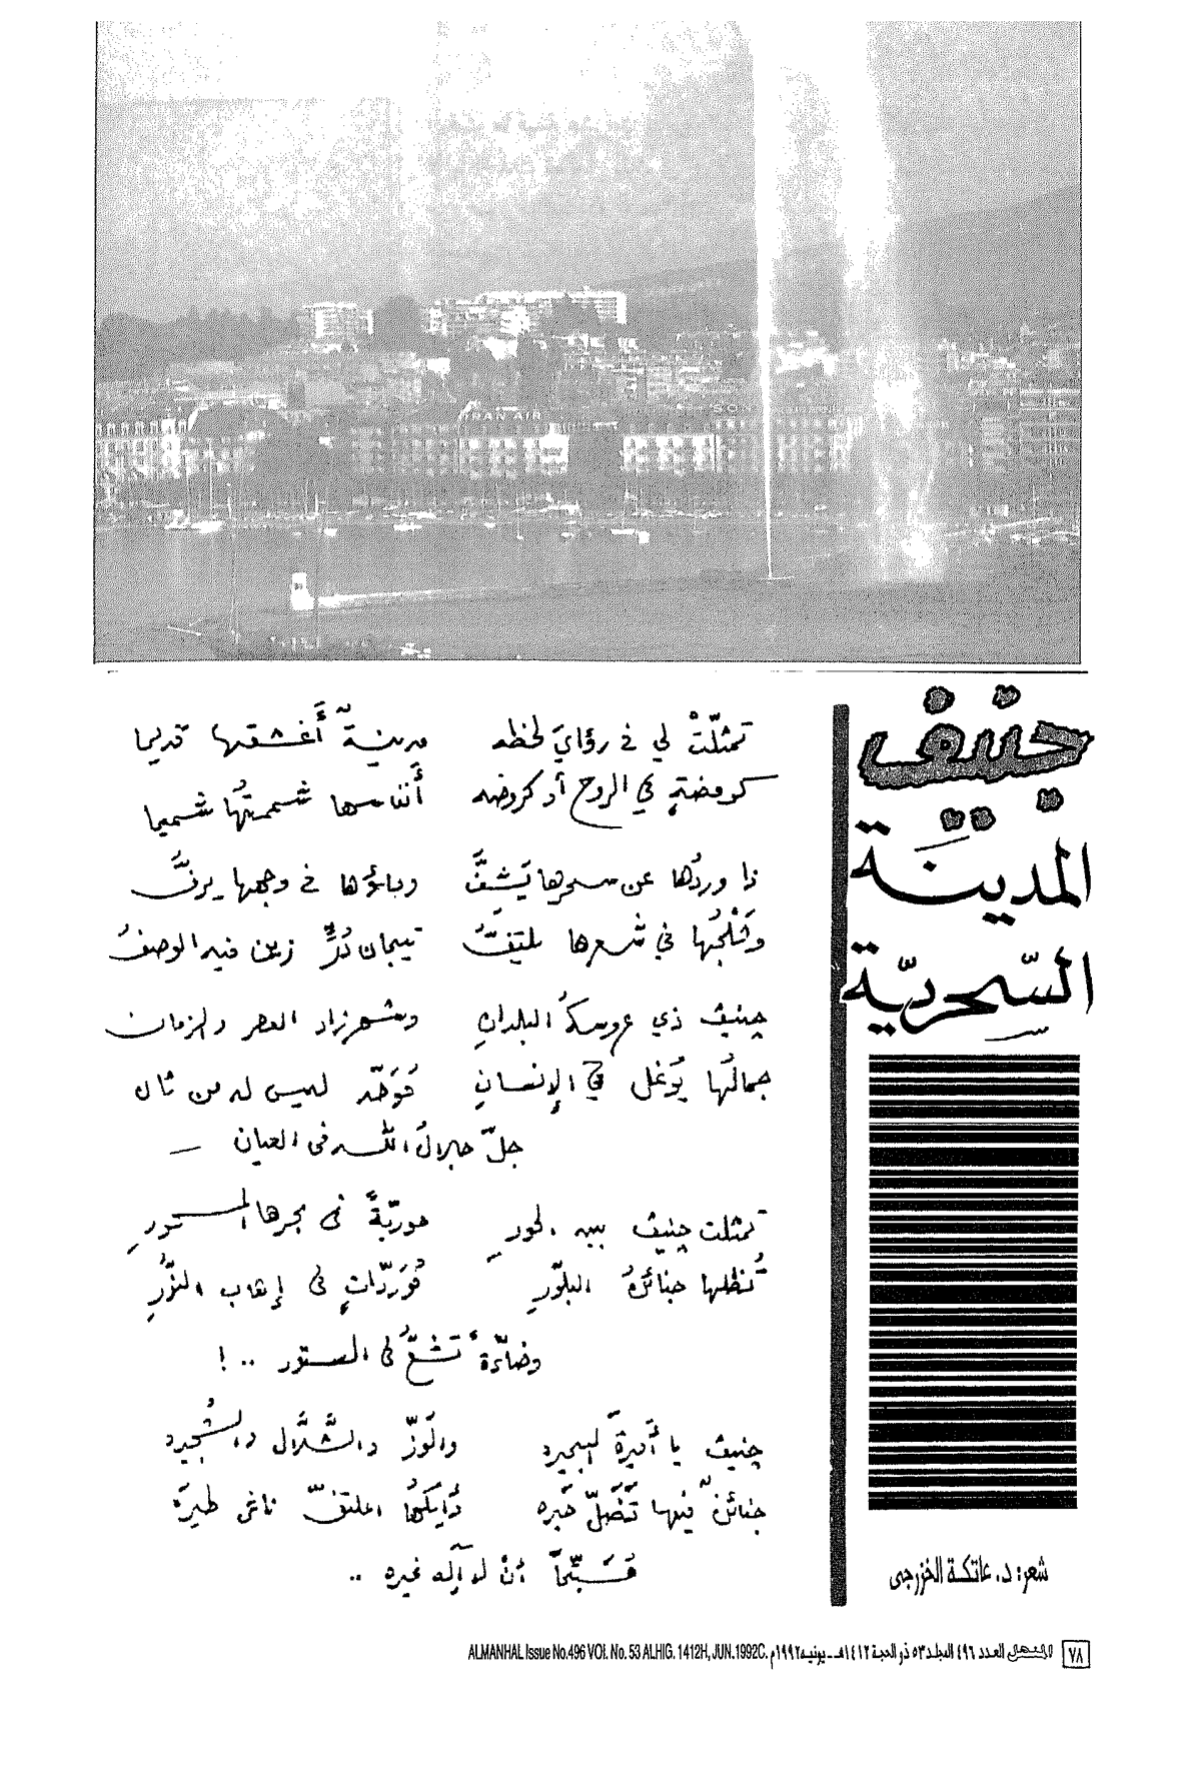 IRAN AIR
جنيف
المدينة
السحرية
تمثلتْ لي في رؤايَ لحظه مدينةٌ أعشقها قديما
كومضةٍ في الروح أو كروضه أنفاسها شممتُها شميما
ذا وردُها عن سحرها يَشِفُّ وباؤها في وجهها يرفُّ
وثلجُها في شعرها يلتفُّ تيجان دُرٍّ زين فيه الوصفُ
جنيف ذي عروسةُ البلدانِ وشهرزاد العصر والزمان
جمالُها يُوغل في الإنسانِ تَوَحّد ليس له من ثان
جلّ جلالُ الله في العيان
تمثلت جنيف بين الحورِ حوريّةً في بحرها المسحورِ
تُظلها جنائنُ البلّورِ مُوَرّداتٍ في إهاب النُّورِ
وضاءةً تشعُّ في الستور .. !
جنيف يا أميرةَ البحيره والوزّ والشّلّال والشُّجيره
جنائنٌ فيها تَضَلّ حَيره وأيكها الملتفّ ناغى طيرَه
فسبّحاً أنْ لا آله غيره ..
شعر: د. عاتكة الخزرجى
٧٨ المنهل العدد ٤٩٦ المجلد ٥٣ ذو الحجة ١٤١٢هـ - يونيه ١٩٩٢م ALMANHAL Issue No.496 VOl. No. 53 ALHIG. 1412H, JUN.1992C.